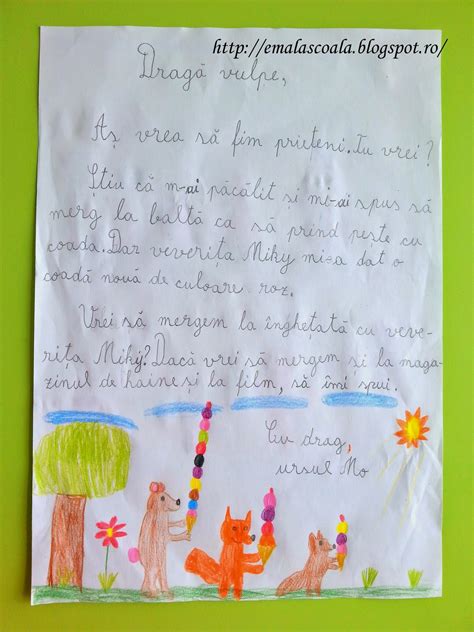 http://emalascoala.blogspot.ro/
Dragă vulpe,
Aș vrea să fim prieteni. Tu vrei?
Știu că m-ai păcălit și mi-ai spus să
merg la baltă ca să prind pește cu
coada. Dar veverița Miky mi-a dat o
coadă nouă de culoare roz.
Vrei să mergem la înghețată cu veve-
rița Miky? Dacă vrei să mergem și la maga-
zinul de haine și la film, să îmi spui.
Cu drag,
ursul Mo